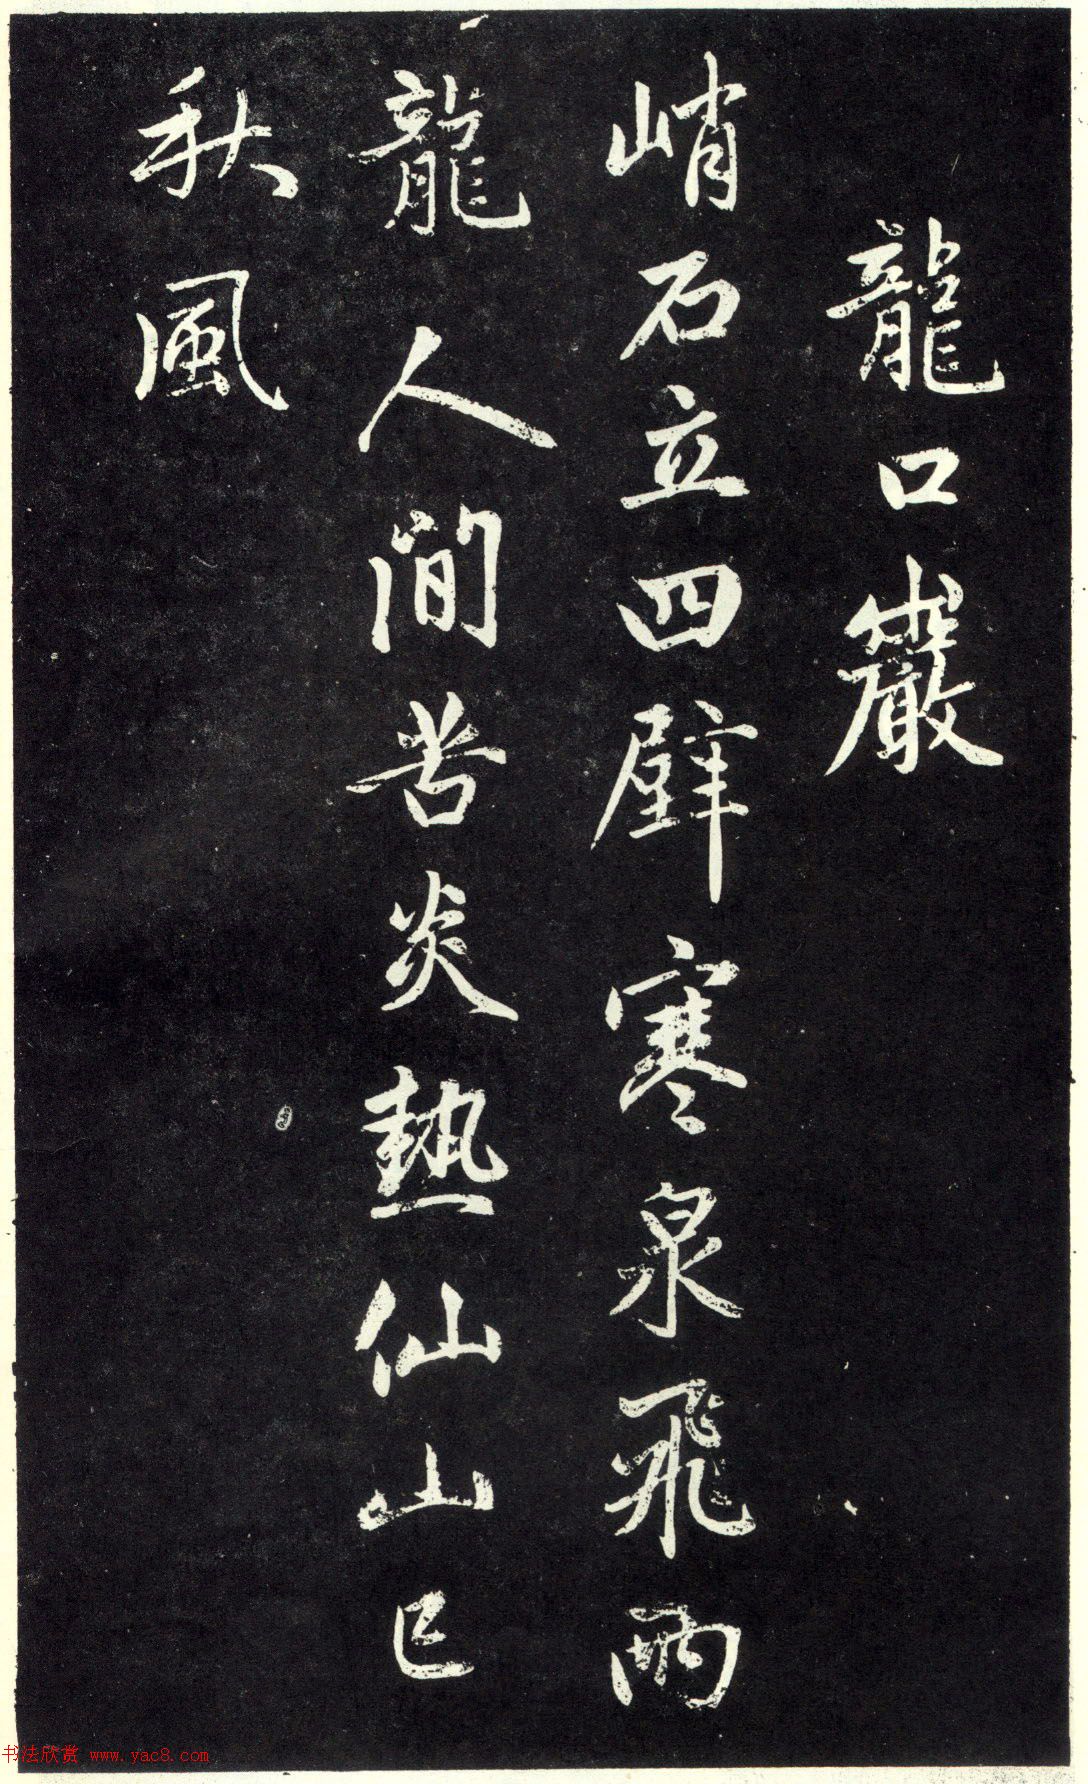 龍口巖
峭石立四壁寒泉飛兩
龍人間苦炎熱仙山已
秋風
书法欣赏 www.yac8.com